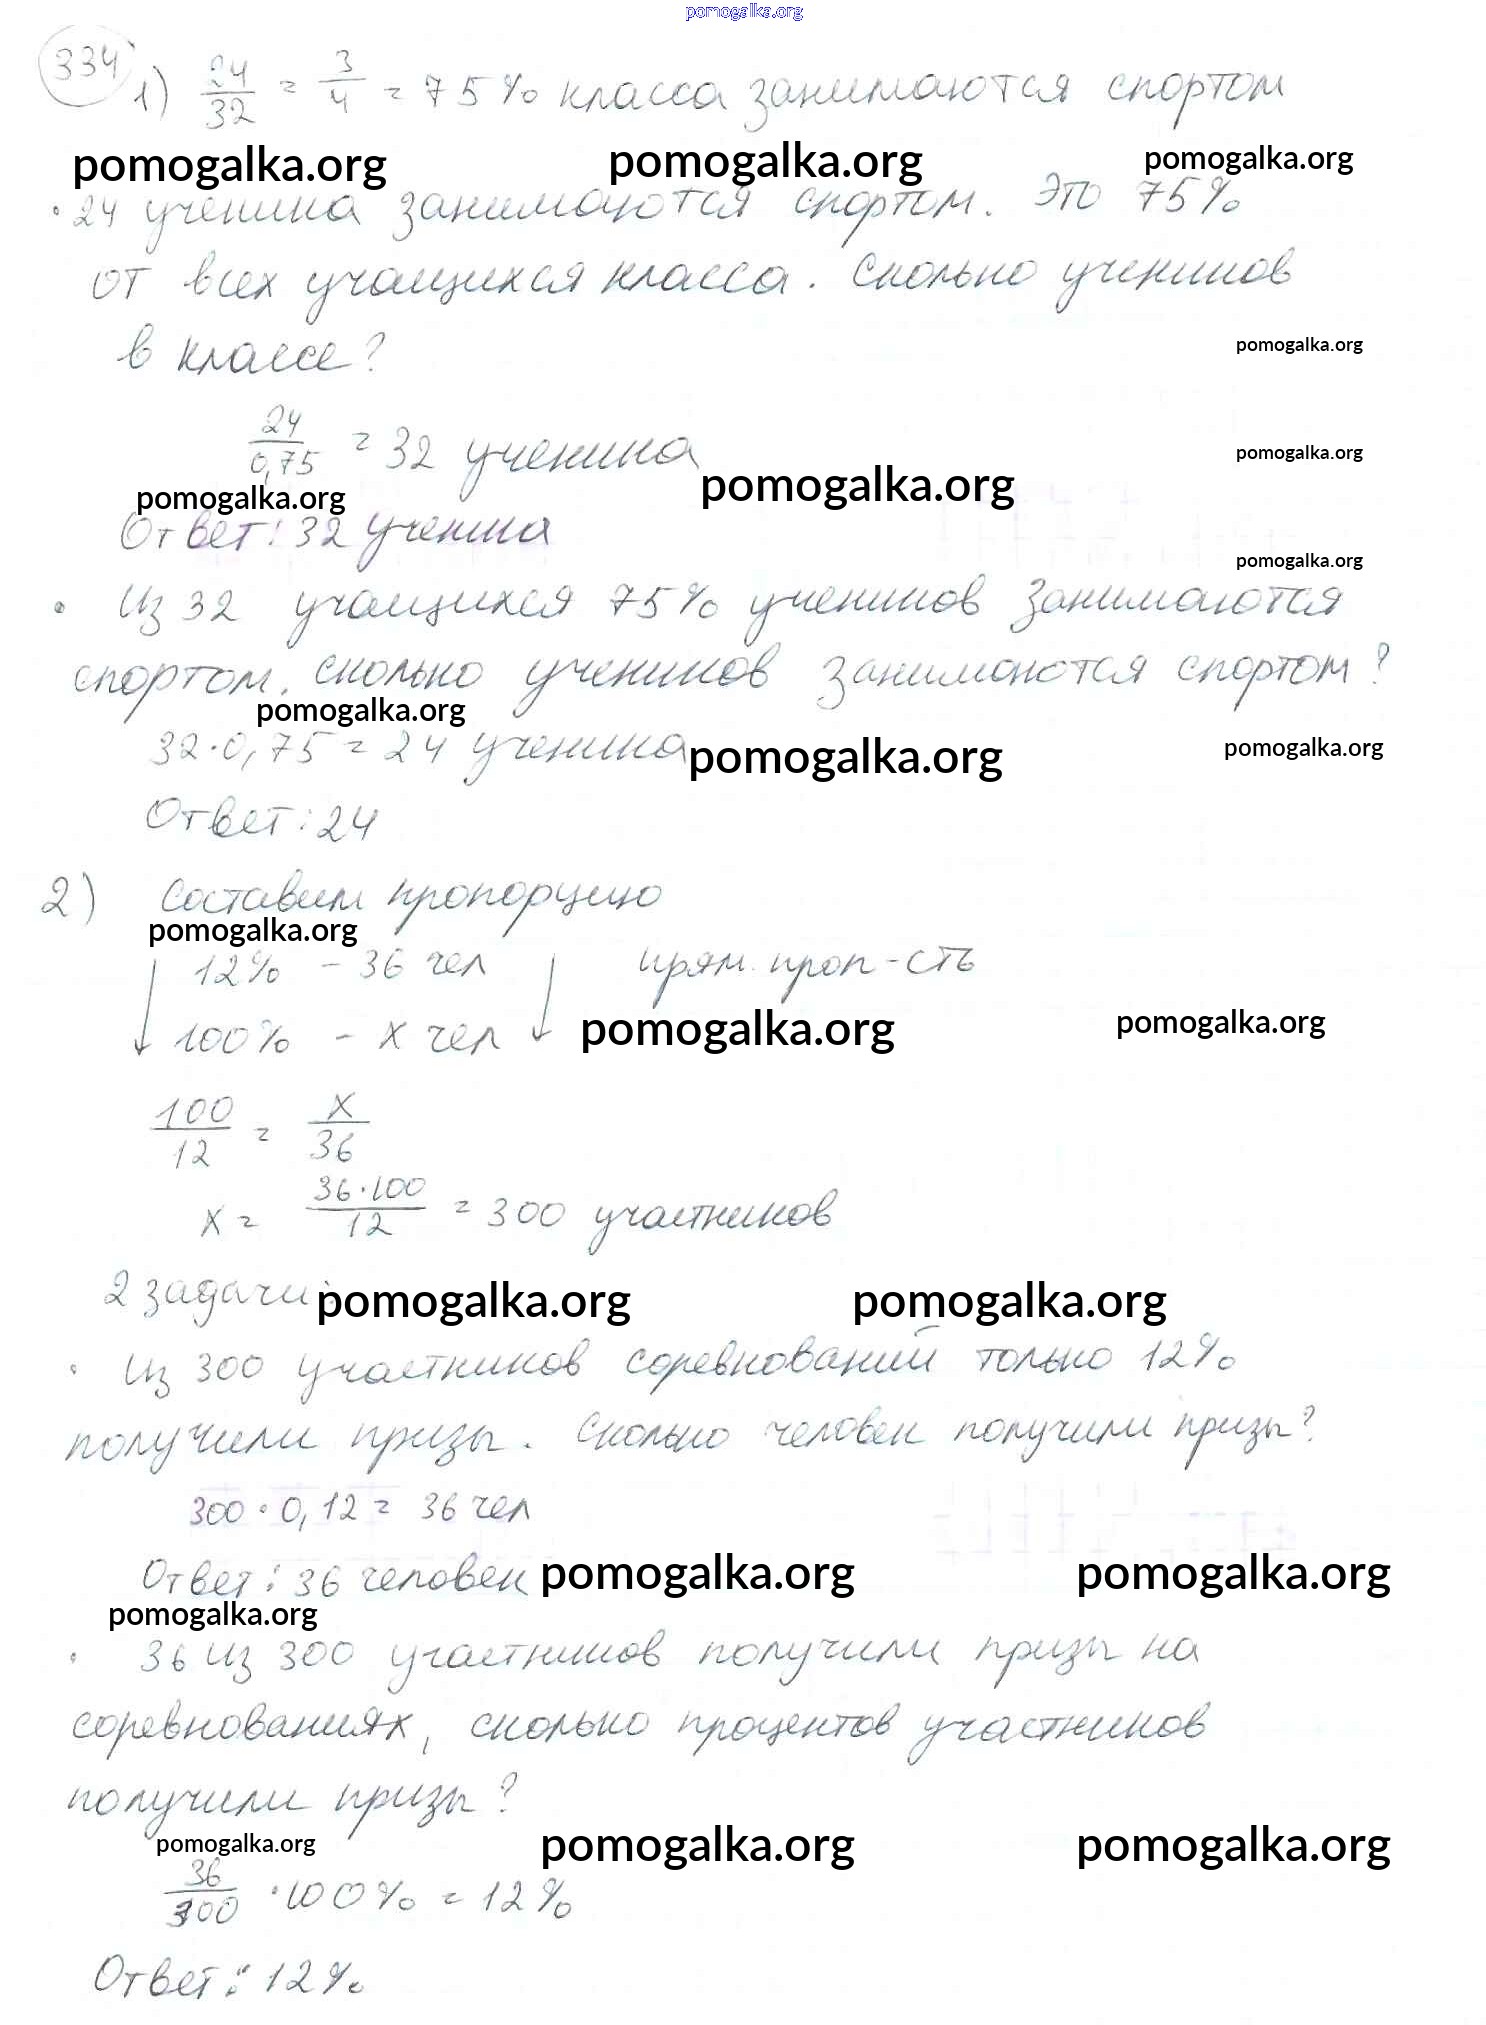 pomogalka.org
334 1) 24/32 = 3/4 = 75% класса занимаются спортом
pomogalka.org pomogalka.org pomogalka.org
· 24 ученика занимаются спортом. Это 75%
от всех учащихся класса. Сколько учеников
в классе?
pomogalka.org
24/0,75 = 32 ученика
pomogalka.org
pomogalka.org pomogalka.org
Ответ: 32 ученика
pomogalka.org
· Из 32 учащихся 75% учеников занимаются
спортом, сколько учеников занимаются спортом?
pomogalka.org
32·0,75 = 24 ученика
pomogalka.org pomogalka.org
Ответ: 24
2) Составим пропорцию
pomogalka.org
12% - 36 чел прям. проп-сть
100% - х чел
pomogalka.org pomogalka.org
100/12 = х/36
х = 36·100/12 = 300 участников
2 задачи:
pomogalka.org pomogalka.org
· Из 300 участников соревнований только 12%
получили призы. Сколько человек получили призы?
300 · 0,12 = 36 чел
Ответ: 36 человек
pomogalka.org pomogalka.org
pomogalka.org
· 36 из 300 участников получили призы на
соревнованиях, сколько процентов участников
получили призы?
pomogalka.org pomogalka.org pomogalka.org
36/300 · 100% = 12%
Ответ: 12%